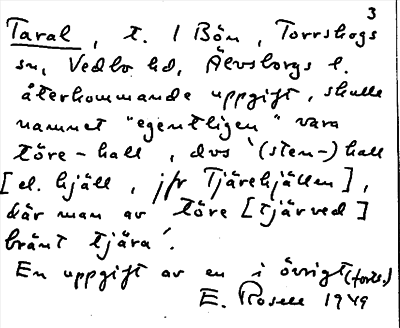 3
Taral, t. 1 Bön, Torrskogs
sn, Vedbo hd, Älvsborgs l.
återkommande uppgift, skulle
namnet "egentligen" vara
töre-hall, dvs '(sten-)hall
[el. hjäll, jfr Tjärehjällen],
där man av töre [tjärved]
bränt tjära'.
En uppgift av en i övrigt (forts.)
E. Rosell 1949